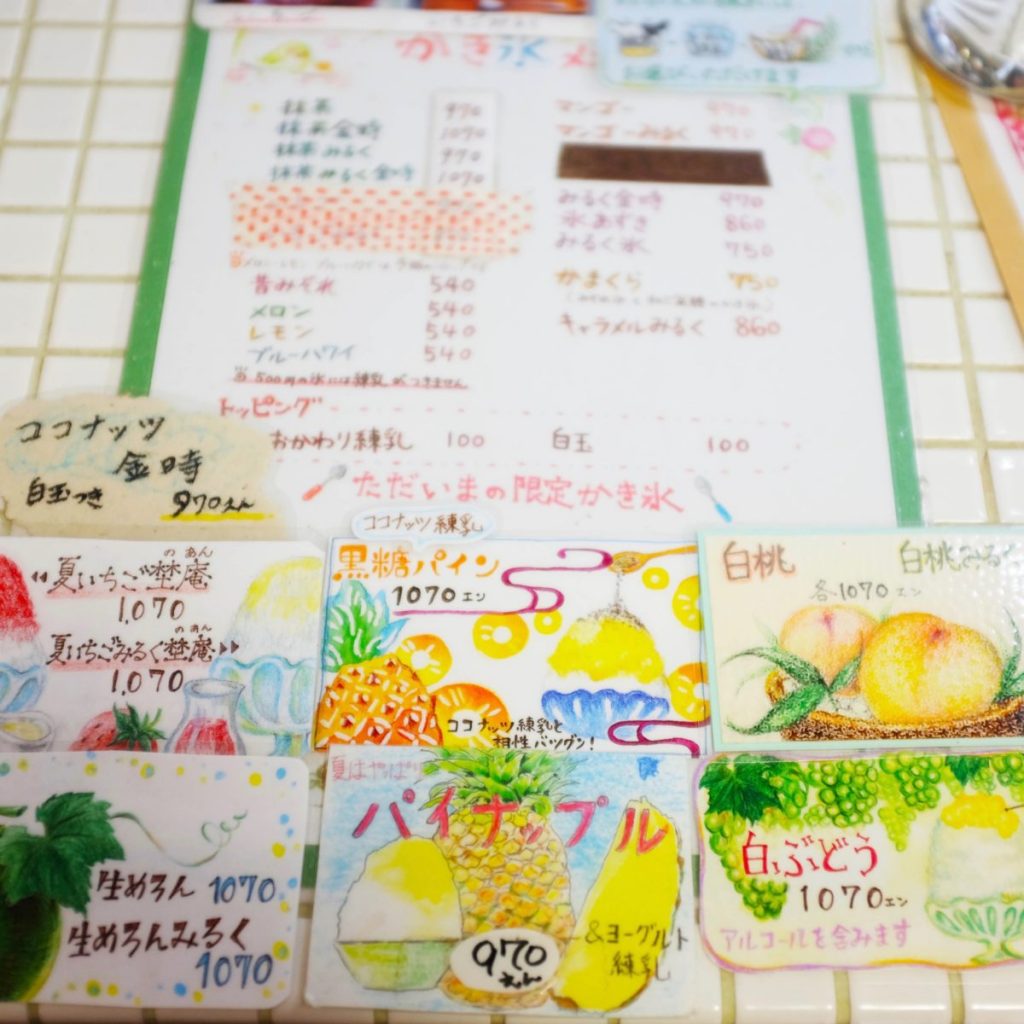 かき氷メ
抹茶 970
抹茶金時 1070
抹茶みるく 970
抹茶みるく金時 1070
昔みぞれ 540
メロン 540
レモン 540
ブルーハワイ 540
※500円の氷には練乳がつきません
マンゴー 970
マンゴーみるく 970
みるく金時 970
氷あずき 860
みるく氷 750
かまくら 750
キャラメルみるく 860
トッピング
おかわり練乳 100 白玉 100
ただいまの限定かき氷
ココナッツ
金時
白玉つき 970えん
夏いちご埜庵
のあん
1,070
夏いちごみるく埜庵
のあん
1,070
ココナッツ練乳
黒糖パイン
1070エン
ココナッツ練乳と
相性バツグン!
白桃 白桃みるく
各1070エン
生めろん 1070
生めろんみるく
1070
夏はやっぱり
パイナップル
970えん
&ヨーグルト
練乳
白ぶどう
1070エン
アルコールを含みます